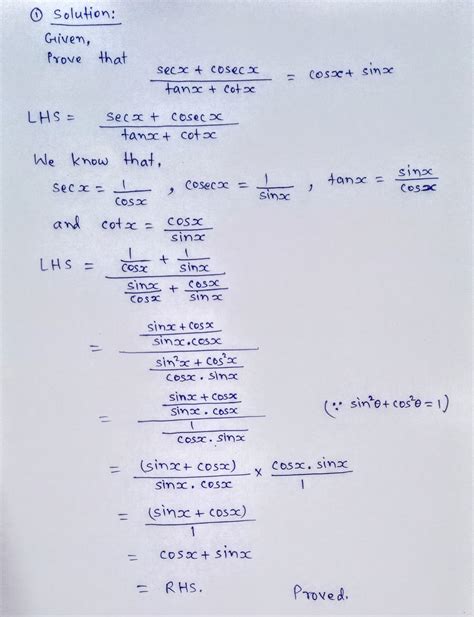 ① Solution:
Given,
Prove that
(secx + cosecx)/(tanx + cotx) = cosx + sinx
LHS = (secx + cosecx)/(tanx + cotx)
We know that,
secx = 1/cosx , cosecx = 1/sinx , tanx = sinx/cosx
and cotx = cosx/sinx
LHS = (1/cosx + 1/sinx)/(sinx/cosx + cosx/sinx)
= ((sinx + cosx)/(sinx.cosx))/((sin²x + cos²x)/(cosx.sinx))
= ((sinx + cosx)/(sinx.cosx))/(1/(cosx.sinx)) (∵ sin²θ + cos²θ = 1)
= (sinx + cosx)/(sinx.cosx) × (cosx.sinx)/1
= (sinx + cosx)/1
= cosx + sinx
= RHS. Proved.